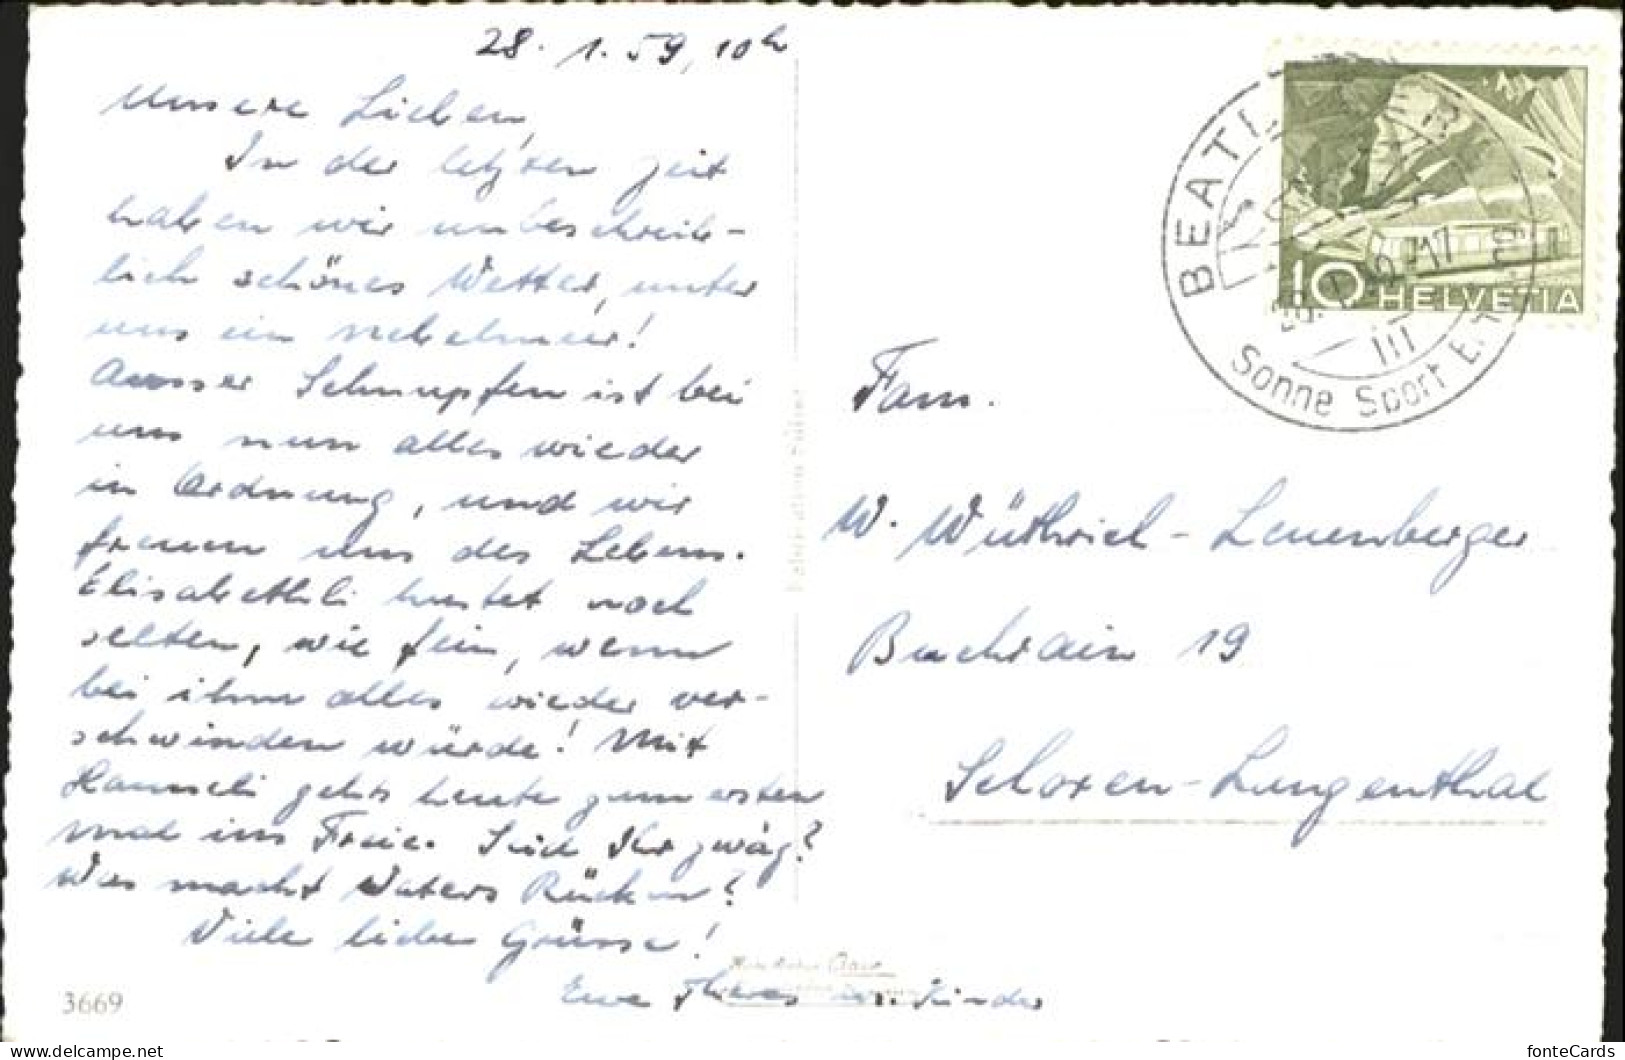 28. 1. 59, 10h
Unsere Lieben,
In der letzten Zeit
haben wir unbeschreib-
lich schönes Wetter, unter
uns ein Nebelmeer!
Ausser Schnupfen ist bei
uns nun alles wieder
in Ordnung, und wir
freuen uns des Lebens.
Elisabethli hustet noch
selten, wie fein, wenn
bei ihm alles wieder ver-
schwinden würde! Mit
Hansueli gehts heute zum ersten
mal ins Freie. Seid Ihr zwäg?
Was macht Vaters Rücken?
Viele liebe Grüsse!
Eure Theres u. Kinder
3669
BEATENBERG
28. 1. 59-17
III
Sonne Sport Er
10 HELVETIA
Fam.
W. Wüthrich-Leuenberger
Buchrain 19
Schoren-Langenthal
fonteCards